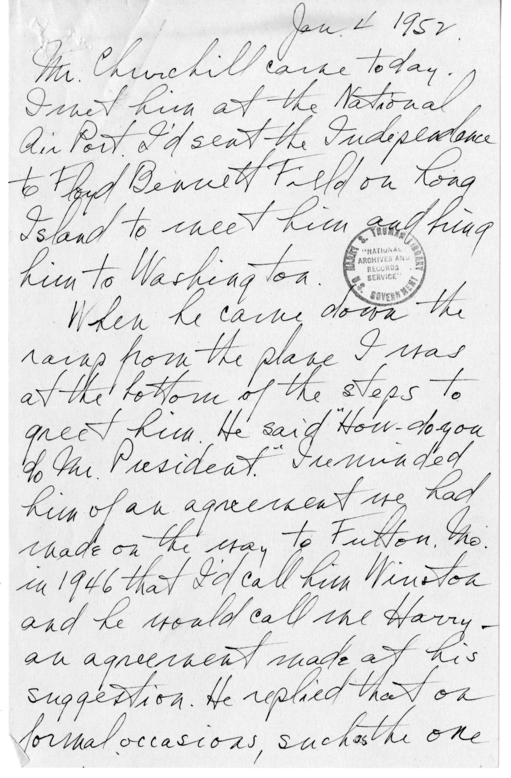 Jan. 4 1952.
Mr. Churchill came today.
I met him at the National
Air Port. I'd sent the Independence
to Floyd Bennett Field on Long
Island to meet him and bring
him to Washington.
HARRY S. TRUMAN LIBRARY
"NATIONAL
ARCHIVES AND
RECORDS
SERVICE"
U.S. GOVERNMENT
When he came down the
ramp from the plane I was
at the bottom of the steps to
greet him. He said "How-do-you
do Mr. President." I reminded
him of an agreement we had
made on the way to Fulton, Mo.
in 1946 that I'd call him Winston
and he would call me Harry -
an agreement made at his
suggestion. He replied that on
formal occasions, such as the one